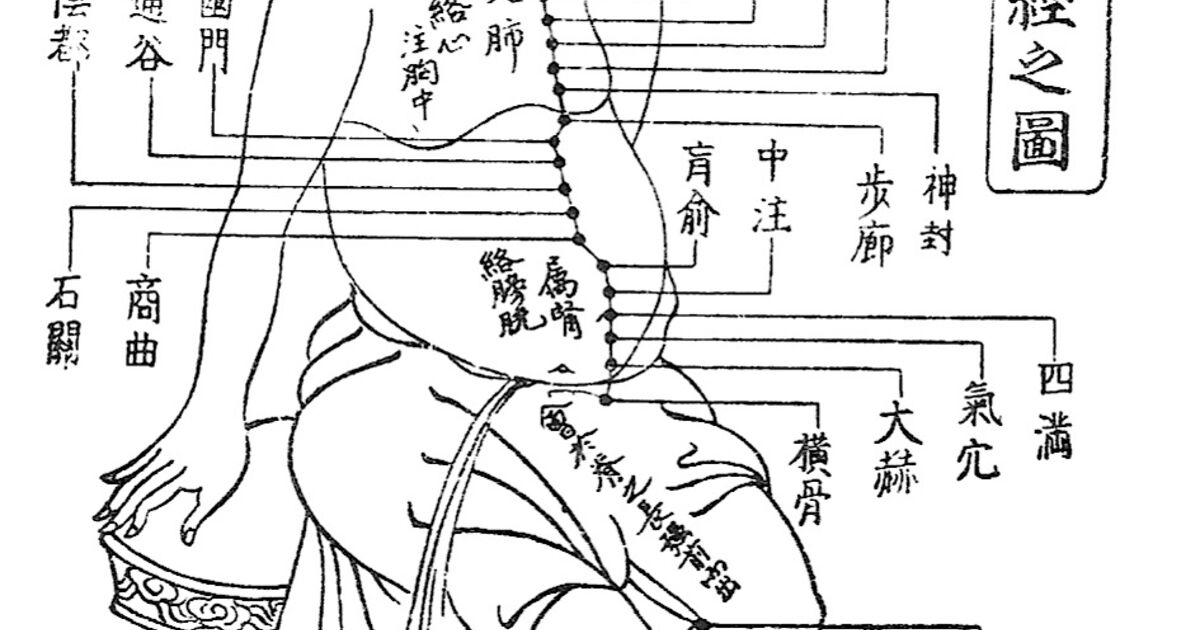 經之圖
神封
步廊
中注
肓俞
四滿
氣穴
大赫
橫骨
肺
絡心
注胸中
幽門
通谷
陰都
商曲
石關
屬腎
絡膀胱